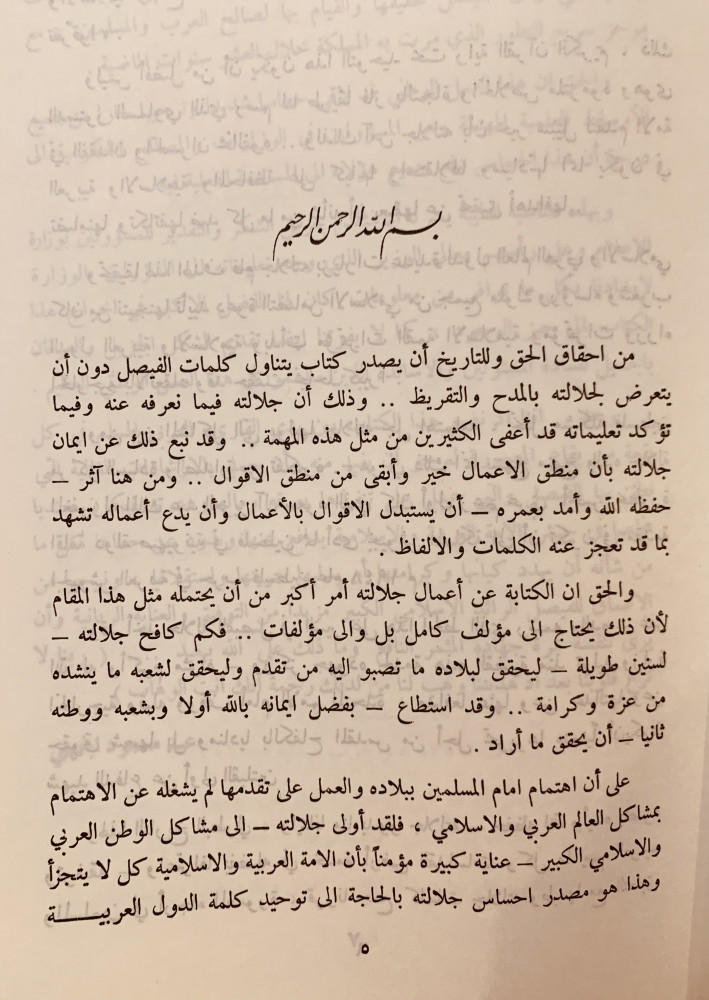 بسم الله الرحمن الرحيم
من احقاق الحق وللتاريخ أن يصدر كتاب يتناول كلمات الفيصل دون أن
يتعرض لجلالته بالمدح والتقريظ .. وذلك أن جلالته فيما نعرفه عنه وفيما
تؤكد تعليماته قد أعفى الكثيرين من مثل هذه المهمة .. وقد نبع ذلك عن ايمان
جلالته بأن منطق الاعمال خير وأبقى من منطق الاقوال .. ومن هنا آثر ــ
حفظه الله وأمد بعمره ــ أن يستبدل الاقوال بالأعمال وأن يدع أعماله تشهد
بما قد تعجز عنه الكلمات والالفاظ .
والحق ان الكتابة عن أعمال جلالته أمر أكبر من أن يحتمله مثل هذا المقام
لأن ذلك يحتاج الى مؤلف كامل بل والى مؤلفات .. فكم كافح جلالته ــ
لسنين طويلة ــ ليحقق لبلاده ما تصبو اليه من تقدم وليحقق لشعبه ما ينشده
من عزة وكرامة .. وقد استطاع ــ بفضل ايمانه بالله أولا وبشعبه ووطنه
ثانيا ــ أن يحقق ما أراد .
على أن اهتمام امام المسلمين ببلاده والعمل على تقدمها لم يشغله عن الاهتمام
بمشاكل العالم العربي والاسلامي ، فلقد أولى جلالته ــ الى مشاكل الوطن العربي
والاسلامي الكبير ــ عناية كبيرة مؤمناً بأن الامة العربية والاسلامية كل لا يتجزأ
وهذا هو مصدر احساس جلالته بالحاجة الى توحيد كلمة الدول العربيـــة
٥